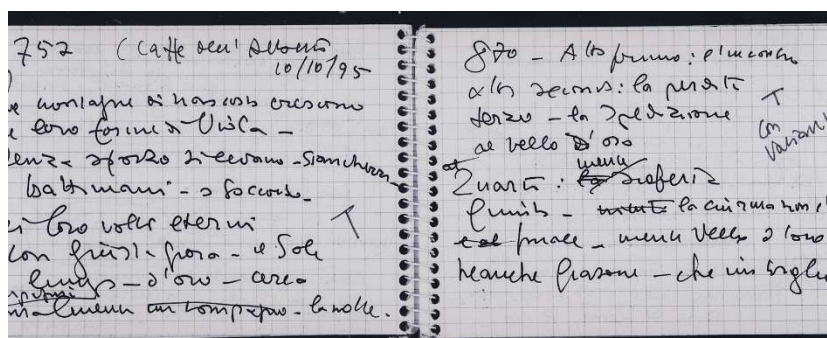 757 (Caffè dell'
10/10/95
e montagne di nascosto crescono
e loro forme di Viola -
senza sforzo si levano - stanchezza -
battimani - o soccorso -
ei loro volti eterni T
con giusta gioia - il Sole
lungo - d'oro - cerca
un compagno - la notte.
870 - Atto primo: l'incontro
atto secondo: la perdita
terzo - la spedizione
al vello d'oro
T con varianti
Quarto: la scoperta
Quinto - la ciurma non c'
finale - vello d'oro
neanche Giasone - che un